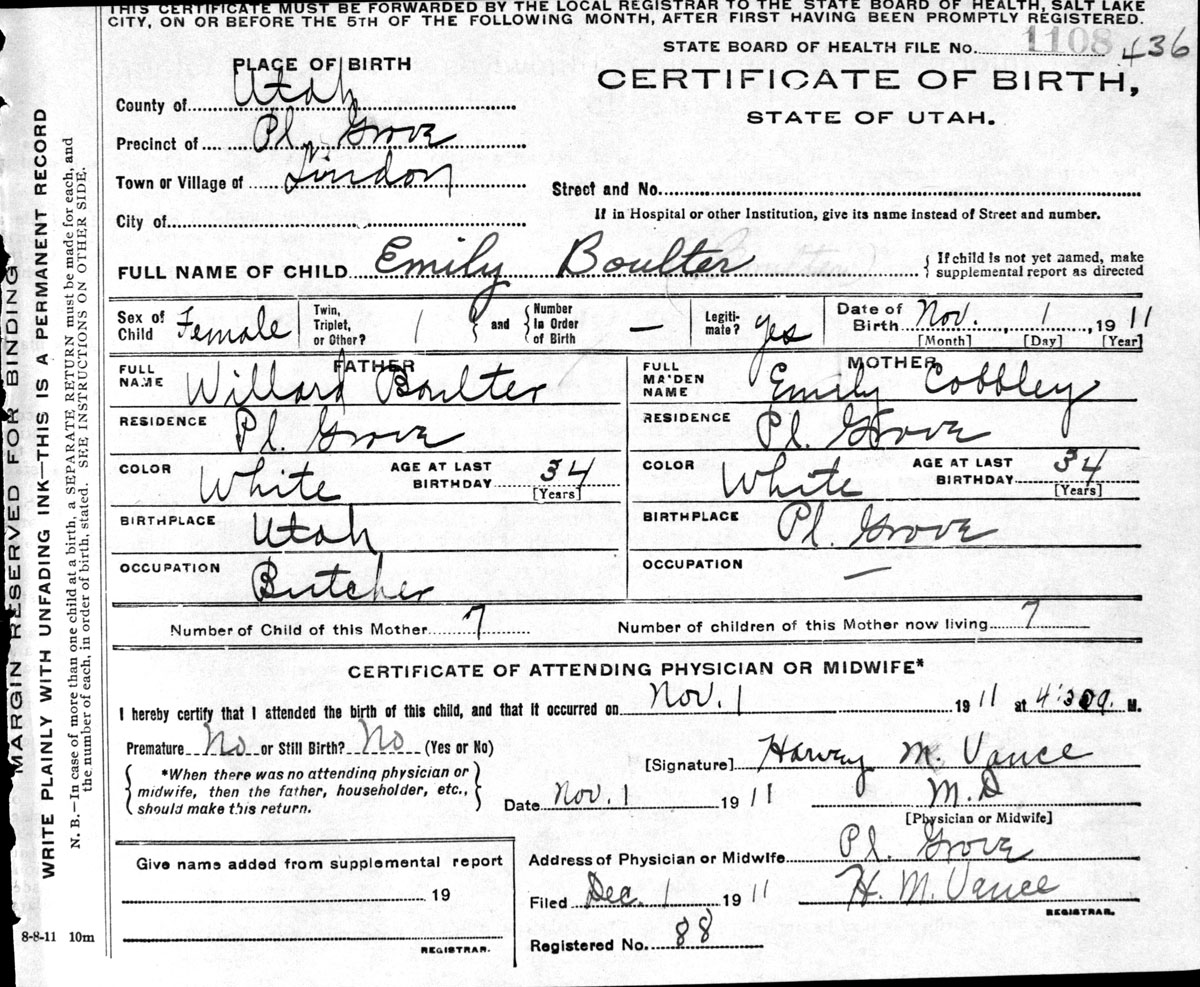 THIS CERTIFICATE MUST BE FORWARDED BY THE LOCAL REGISTRAR TO THE STATE BOARD OF HEALTH, SALT LAKE
CITY, ON OR BEFORE THE 5TH OF THE FOLLOWING MONTH, AFTER FIRST HAVING BEEN PROMPTLY REGISTERED.
STATE BOARD OF HEALTH FILE No. 1108 436
PLACE OF BIRTH
CERTIFICATE OF BIRTH,
STATE OF UTAH.
County of Utah
Precinct of Pl. Grove
Town or Village of Lindon
Street and No.
City of
If in Hospital or other Institution, give its name instead of Street and number.
FULL NAME OF CHILD Emily Boulter { If child is not yet named, make
supplemental report as directed
Sex of Child Female
Twin, Triplet, or Other? 1 } and { Number In Order of Birth —
Legiti- mate? yes
Date of Birth Nov. 1, 1911
[Month] [Day] [Year]
FATHER
FULL NAME Willard Boulter
RESIDENCE Pl. Grove
COLOR White AGE AT LAST BIRTHDAY 34
[Years]
BIRTHPLACE Utah
OCCUPATION Butcher
MOTHER
FULL MAIDEN NAME Emily Cobbley
RESIDENCE Pl. Grove
COLOR White AGE AT LAST BIRTHDAY 34
[Years]
BIRTHPLACE Pl. Grove
OCCUPATION —
Number of Child of this Mother 7 Number of children of this Mother now living 7
CERTIFICATE OF ATTENDING PHYSICIAN OR MIDWIFE*
I hereby certify that I attended the birth of this child, and that it occurred on Nov. 1 1911 at 4:30 a. M.
Premature No or Still Birth? No (Yes or No)
*When there was no attending physician or
midwife, then the father, householder, etc.,
should make this return.
[Signature] Harvey M. Vance
Date Nov. 1 1911 M.D
[Physician or Midwife]
Give name added from supplemental report
19
REGISTRAR.
Address of Physician or Midwife Pl. Grove
Filed Dec. 1 1911 H. M. Vance
REGISTRAR.
Registered No. 88
8-8-11 10m
MARGIN RESERVED FOR BINDING
WRITE PLAINLY WITH UNFADING INK-THIS IS A PERMANENT RECORD
N. B.—In case of more than one child at a birth, a SEPARATE RETURN must be made for each, and
the number of each, in order of birth, stated. SEE INSTRUCTIONS ON OTHER SIDE.